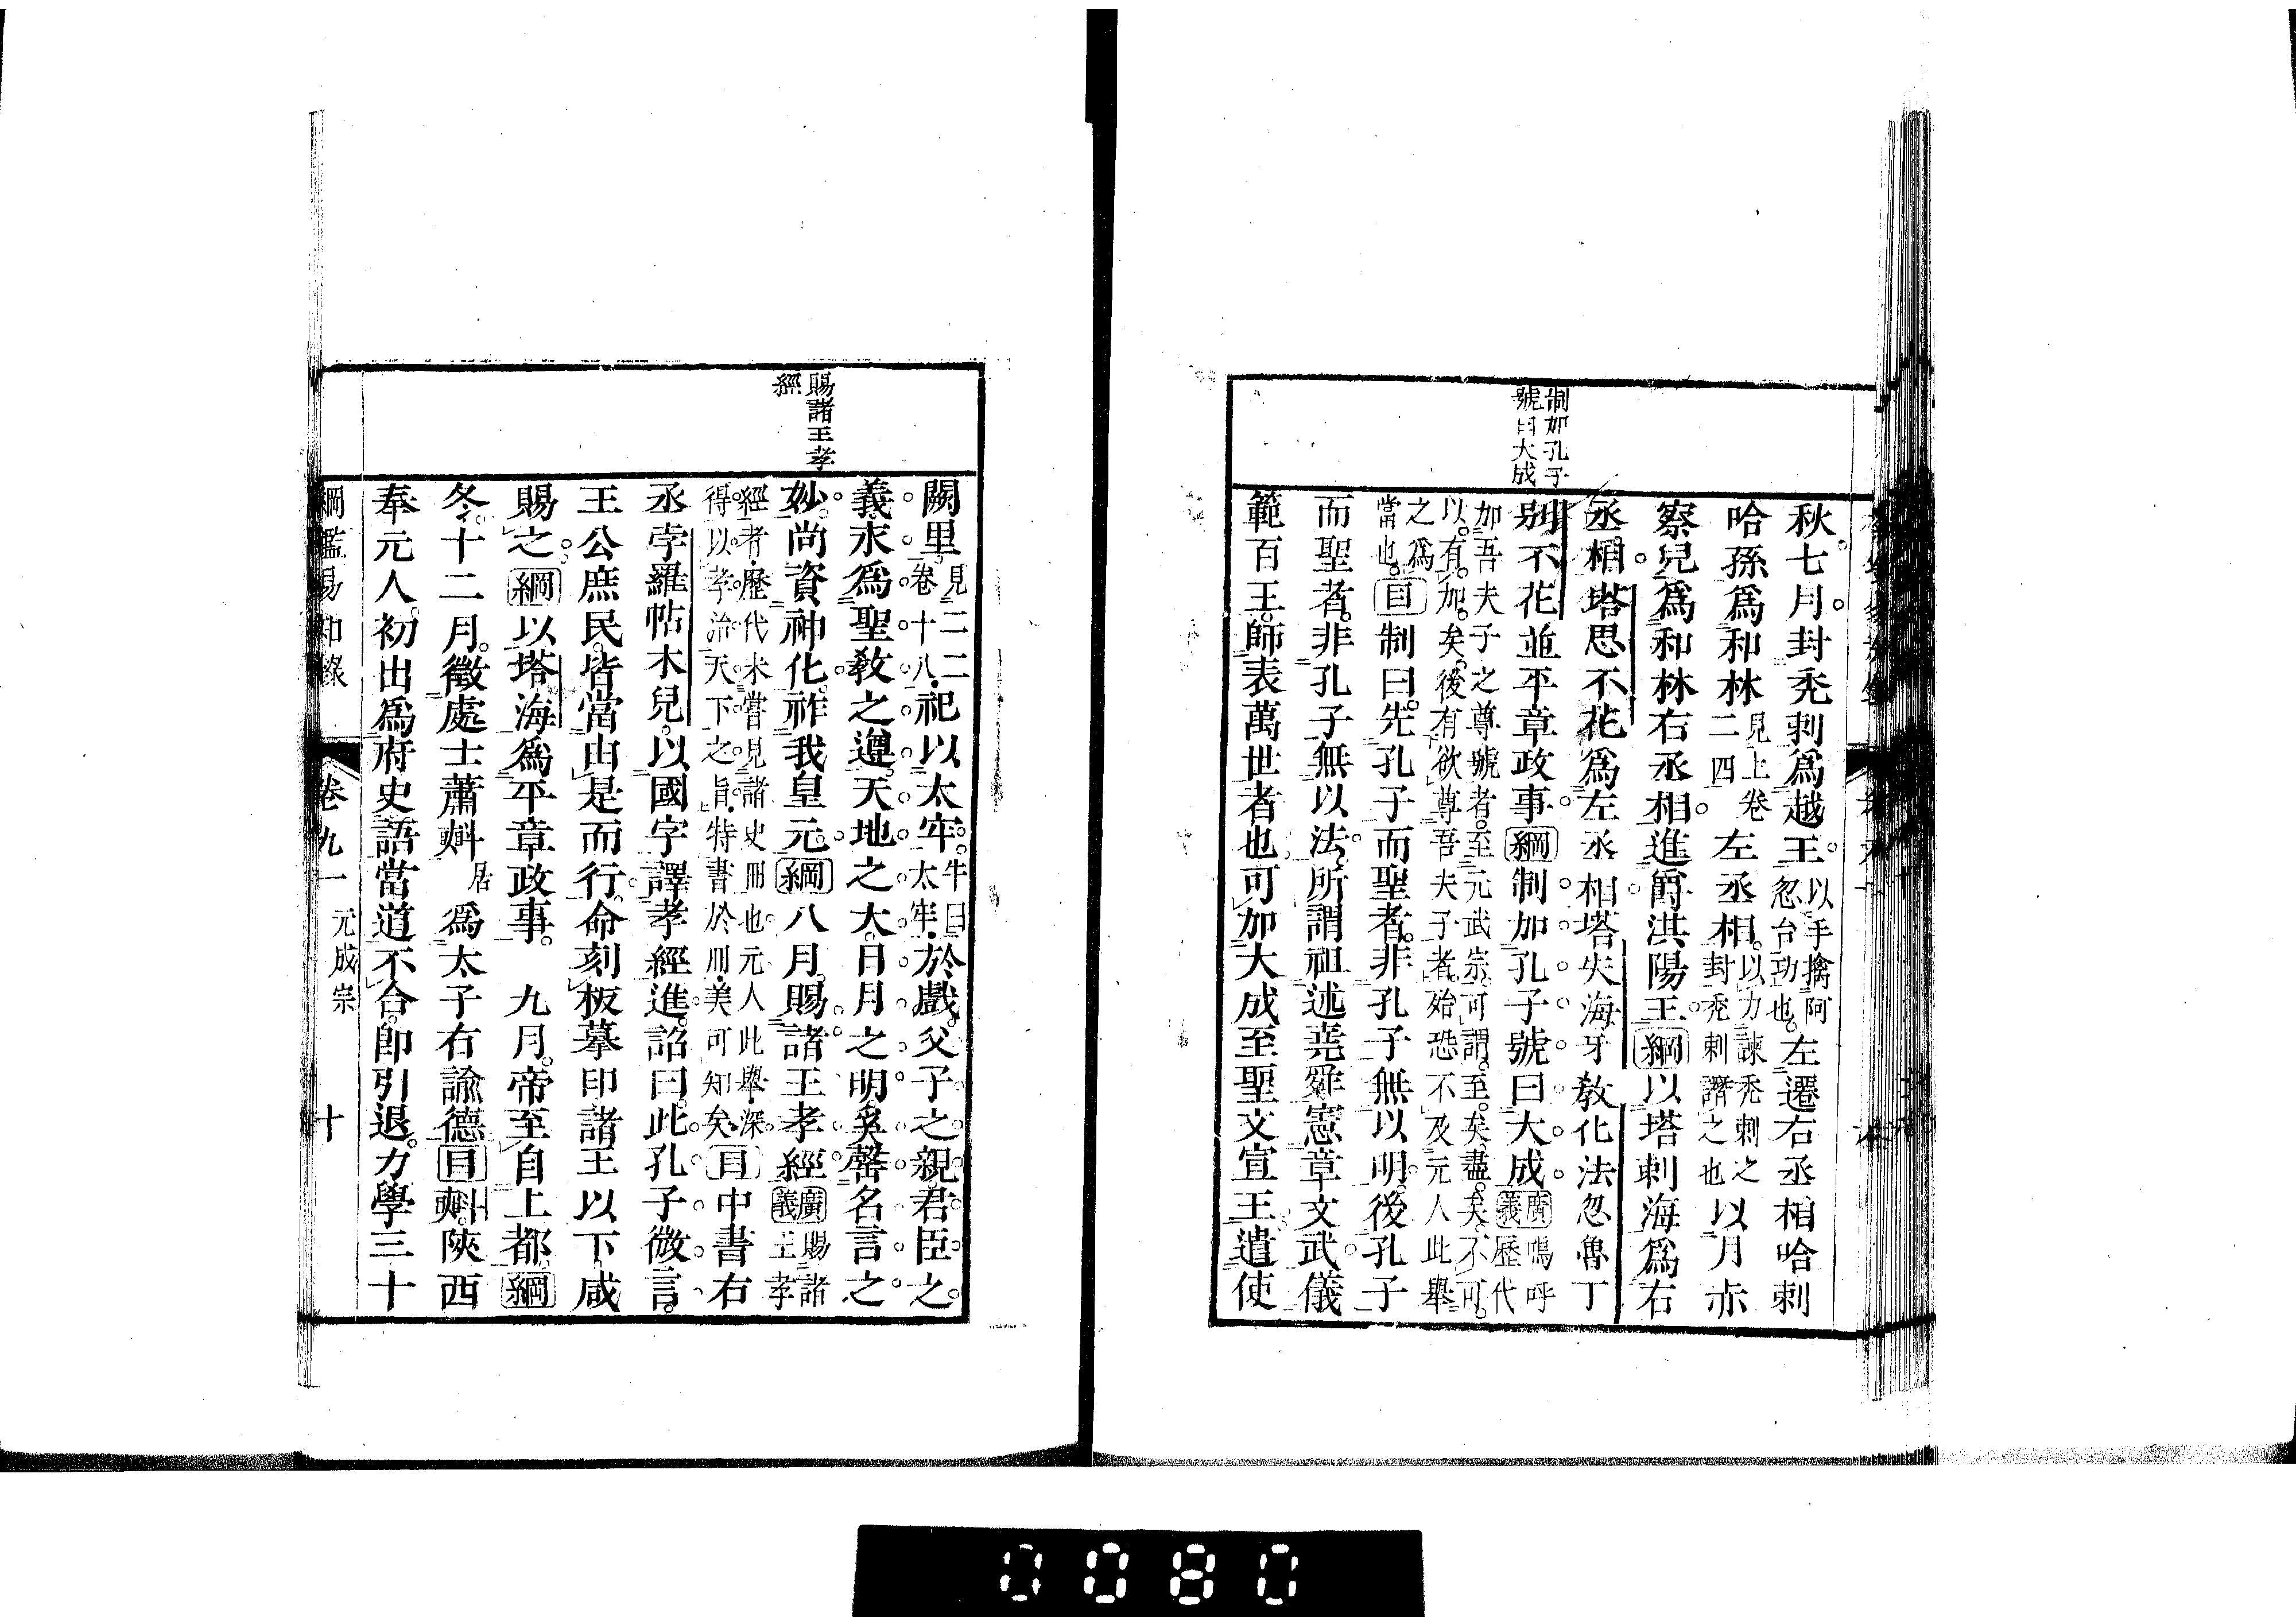 制加孔子
號曰大成
秋七月封禿剌爲越王以手擒阿忽台功也左遷右丞相哈剌
哈孫爲和林見上卷二四左丞相以力諫禿剌之封禿剌譖之也以月赤
察兒爲和林右丞相進爵淇陽王綱以塔剌海爲右
丞相塔思不花爲左丞相塔失海牙教化法忽魯丁
別不花並平章政事綱制加孔子號曰大成廣義嗚呼歷代
加吾夫子之尊號者至元武宗可謂至矣盡矣不可
以有加矣後有欲尊吾夫子者殆恐不及元人此舉
之爲當也目制曰先孔子而聖者非孔子無以明後孔子
而聖者非孔子無以法所謂祖述堯舜憲章文武儀
範百王師表萬世者也可加大成至聖文宣王遣使
賜諸王孝
經
闕里見二二卷十八祀以太牢牛曰太牢於戲父子之親君臣之
義永爲聖教之遵天地之大日月之明奚罄名言之
妙尚資神化祚我皇元綱八月賜諸王孝經廣義賜諸王孝
經者歷代未嘗見諸史冊也元人此舉深
得以孝治天下之旨特書於冊美可知矣目中書右
丞孛羅帖木兒以國字譯孝經進詔曰此孔子微言
王公庶民皆當由是而行命刻板摹印諸王以下咸
賜之綱以塔海爲平章政事 九月帝至自上都綱
冬十二月徵處士蕭㪺居爲太子右諭德目㪺陝西
奉元人初出爲府史語當道不合即引退力學三十
綱鑑易知錄 卷九一 元成宗 十
0080